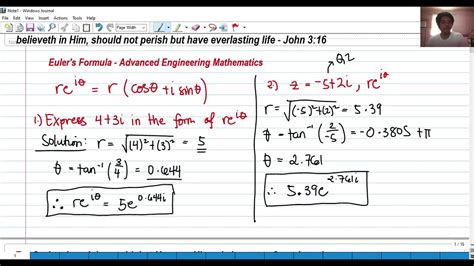 Note1 - Windows Journal
believeth in Him, should not perish but have everlasting life - John 3:16
Euler's Formula - Advanced Engineering Mathematics
re^{iθ} = r (cosθ + i sinθ)
1) Express 4+3i in the form of re^{iθ}
Solution: r = √((4)²+(3)²) = 5
θ = tan⁻¹(3/4) = 0.644
∴ re^{iθ} = 5e^{0.644i}
Q2
2) z = -5+2i, re^{iθ}
r = √((-5)²+(2)²) = 5.39
θ = tan⁻¹(2/-5) = -0.3805 + π
θ = 2.761
∴ 5.39e^{2.761i}